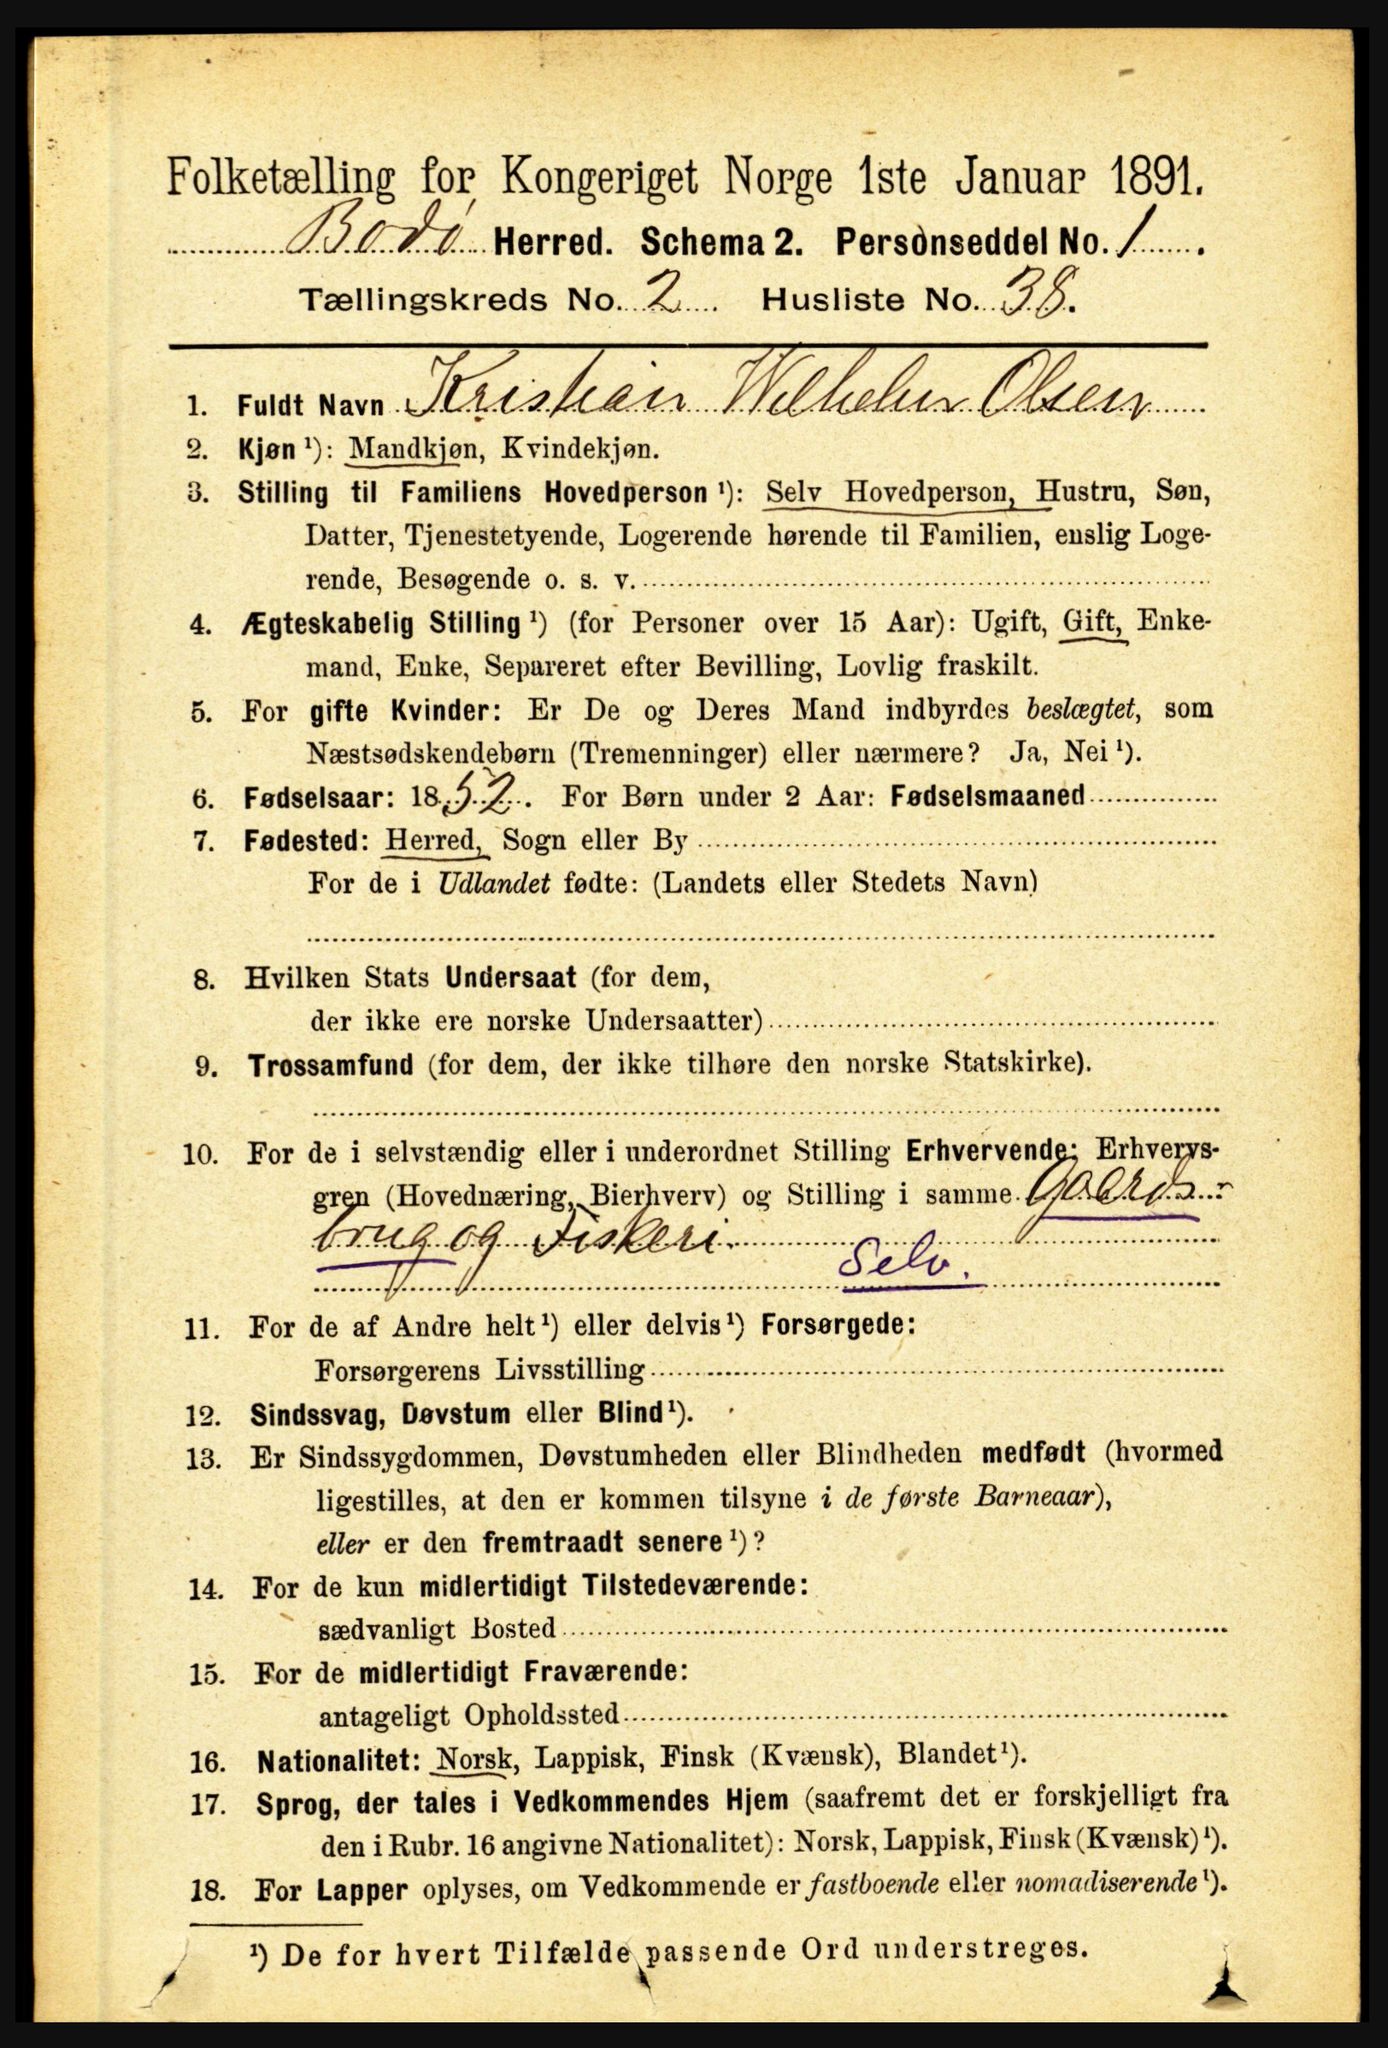 Folketælling for Kongeriget Norge 1ste Januar 1891.
Bodø Herred. Schema 2. Personseddel No. 1.
Tællingskreds No. 2. Husliste No. 38.
1. Fuldt Navn Kristian Wilhelm Olsen
2. Kjøn ¹): Mandkjøn, Kvindekjøn.
3. Stilling til Familiens Hovedperson ¹): Selv Hovedperson, Hustru, Søn,
Datter, Tjenestetyende, Logerende hørende til Familien, enslig Loge-
rende, Besøgende o. s. v.
4. Ægteskabelig Stilling ¹) (for Personer over 15 Aar): Ugift, Gift, Enke-
mand, Enke, Separeret efter Bevilling, Lovlig fraskilt.
5. For gifte Kvinder: Er De og Deres Mand indbyrdes beslægtet, som
Næstsødskendebørn (Tremenninger) eller nærmere? Ja, Nei ¹).
6. Fødselsaar: 1852. For Børn under 2 Aar: Fødselsmaaned
7. Fødested: Herred, Sogn eller By
For de i Udlandet fødte: (Landets eller Stedets Navn)
8. Hvilken Stats Undersaat (for dem,
der ikke ere norske Undersaatter)
9. Trossamfund (for dem, der ikke tilhøre den norske Statskirke).
10. For de i selvstændig eller i underordnet Stilling Erhvervende: Erhvervs-
gren (Hovednæring, Bierhverv) og Stilling i samme. Gaards-
brug og Fiskeri.
Selv.
11. For de af Andre helt ¹) eller delvis ¹) Forsørgede:
Forsørgerens Livsstilling
12. Sindssvag, Døvstum eller Blind ¹).
13. Er Sindssygdommen, Døvstumheden eller Blindheden medfødt (hvormed
ligestilles, at den er kommen tilsyne i de første Barneaar),
eller er den fremtraadt senere ¹)?
14. For de kun midlertidigt Tilstedeværende:
sædvanligt Bosted
15. For de midlertidigt Fraværende:
antageligt Opholdssted
16. Nationalitet: Norsk, Lappisk, Finsk (Kvænsk), Blandet ¹).
17. Sprog, der tales i Vedkommendes Hjem (saafremt det er forskjelligt fra
den i Rubr. 16 angivne Nationalitet): Norsk, Lappisk, Finsk (Kvænsk) ¹).
18. For Lapper oplyses, om Vedkommende er fastboende eller nomadiserende ¹).
¹) De for hvert Tilfælde passende Ord understreges.